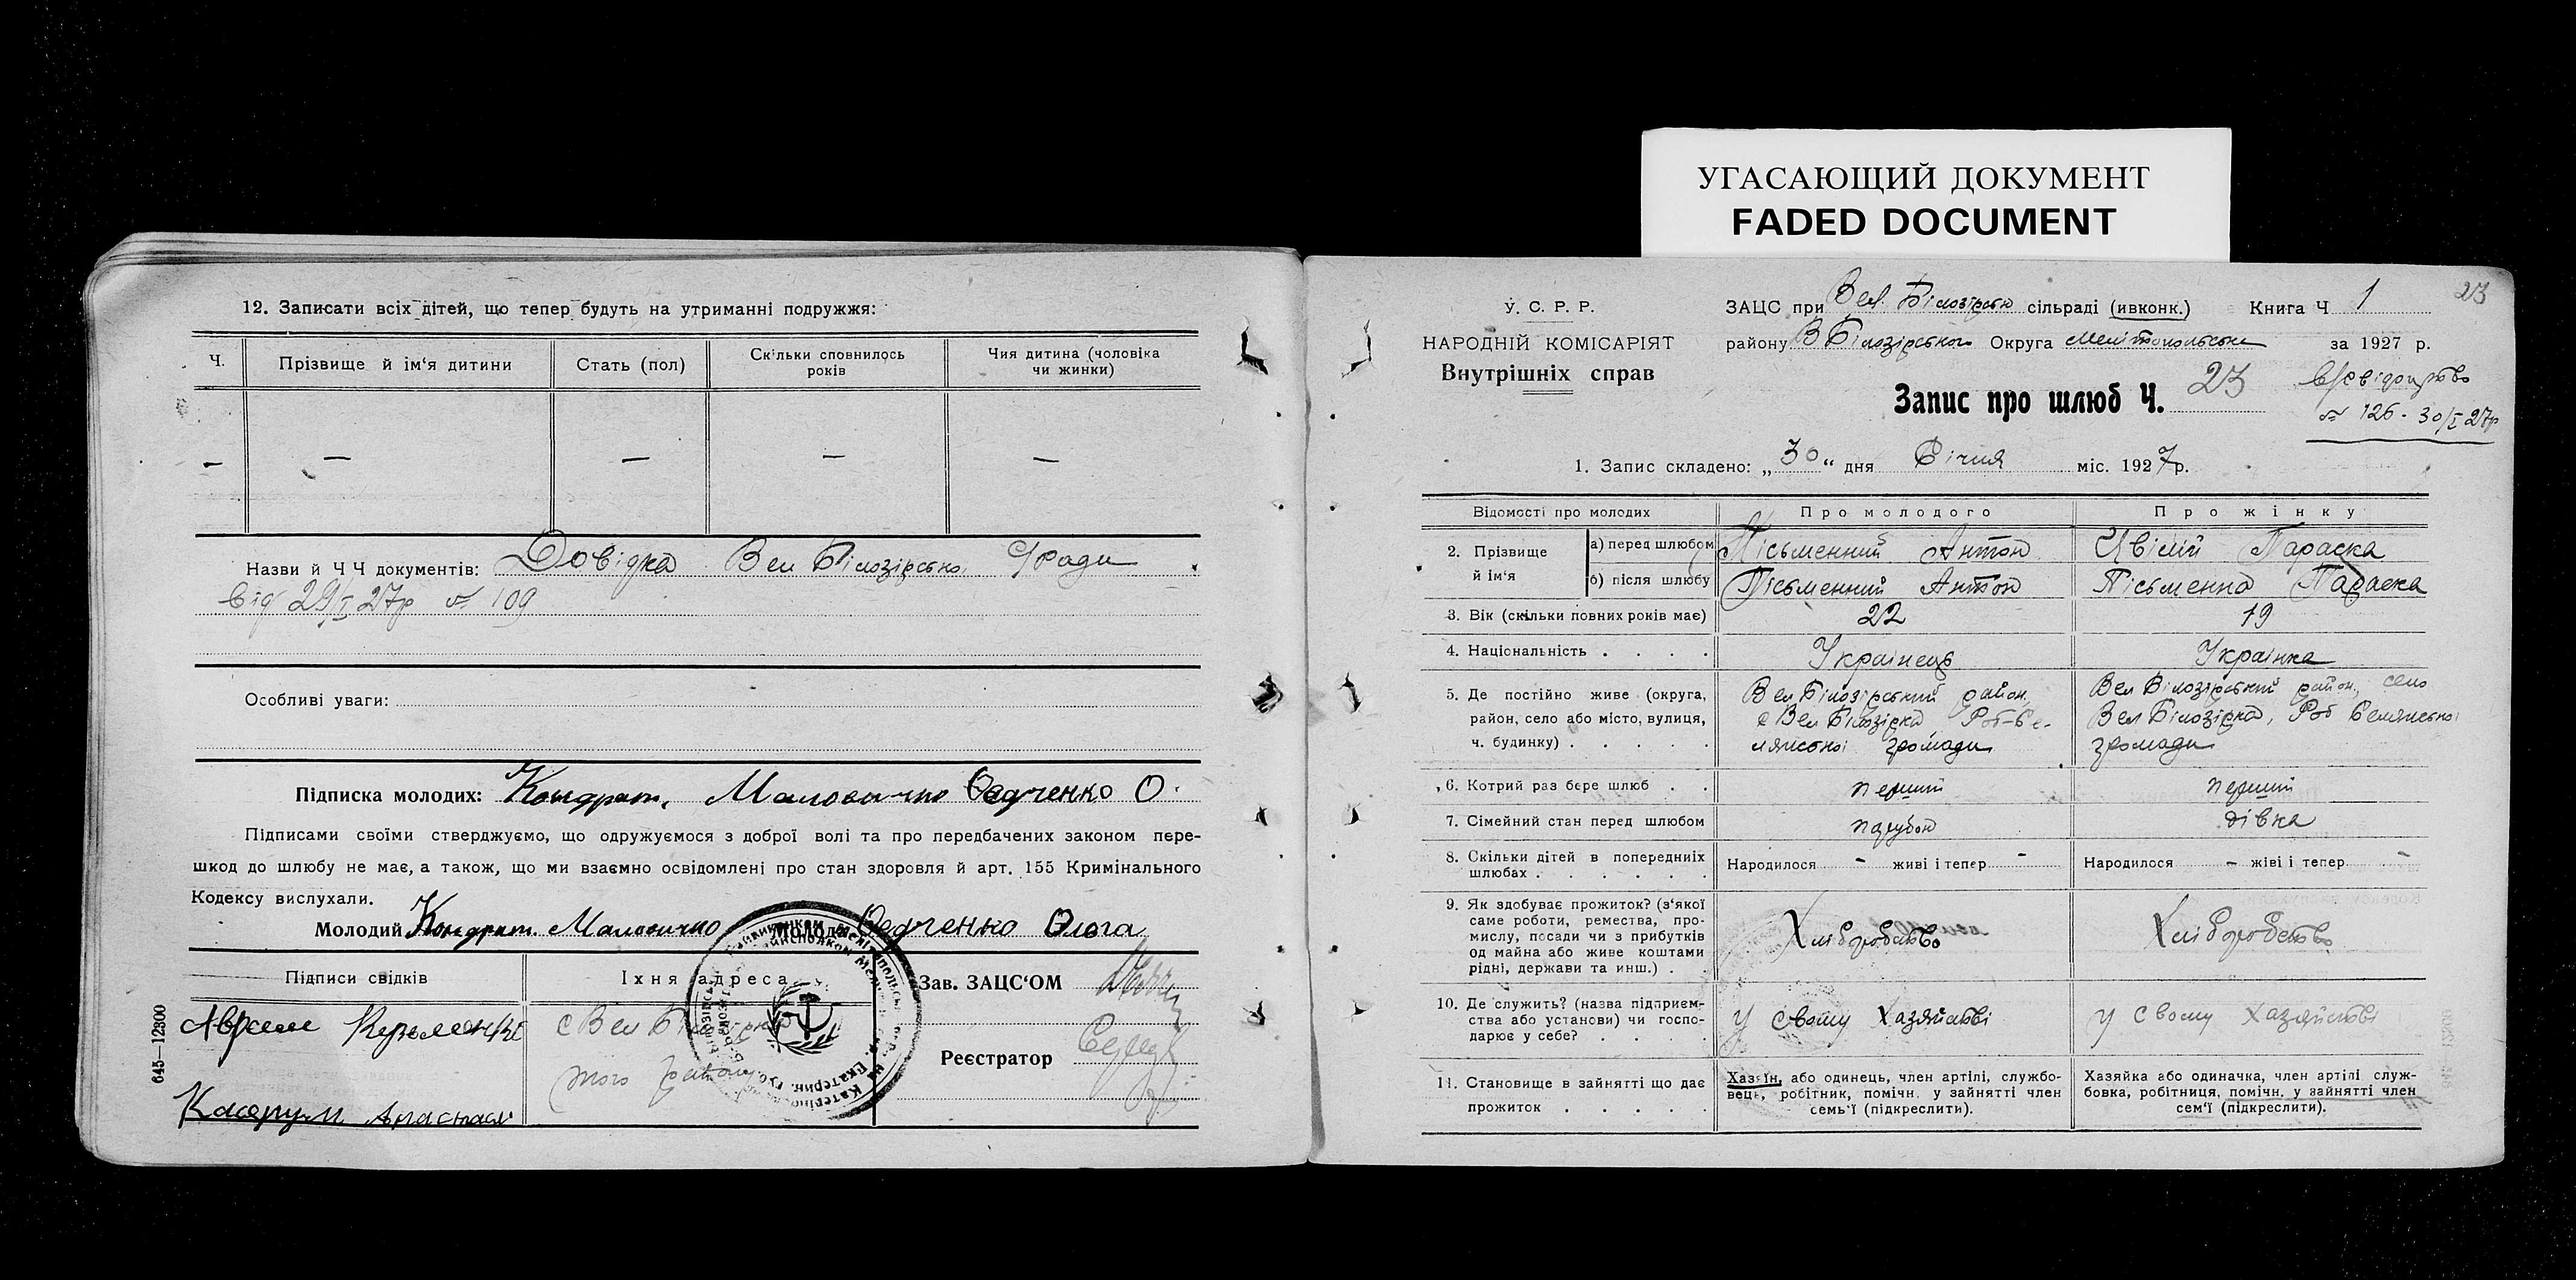 УГАСАЮЩИЙ ДОКУМЕНТ
FADED DOCUMENT
12. Записати всіх дітей, що тепер будуть на утриманні подружжя:
Ч.
Прізвище й ім‘я дитини
Стать (пол)
Скільки сповнилось років
Чия дитина (чоловіка чи жинки)
— — — — —
Назви й Ч Ч документів: Довідка Вел Білозірської С/ради
від 29/I 27р № 109
Особливі уваги:
Підписка молодих: Кондрат Маловичко Федченко О.
Підписами своїми стверджуємо, що одружуємося з доброї волі та про передбачених законом пере-
шкод до шлюбу не має, а також, що ми взаємно освідомлені про стан здоровля й арт. 155 Кримінального
Кодексу вислухали.
Молодий Кондрат Маловичко Молода Федченко Ольга
Підписи свідків
Їхня адреса
Зав. ЗАЦС‘ОМ
с Вел Білозірка
того району
Реєстратор
645—12300
У. С. Р. Р.
НАРОДНІЙ КОМІСАРІЯТ
Внутрішніх справ
ЗАЦС при Вел. Білозірськ сільраді (ивконк.) Книга Ч 1
23
району В Білозірського Округа Мелітопольська за 1927 р.
Запис про шлюб Ч. 23
№ 126 - 30/I 27р
1. Запис складено: „30“ дня Січня міс. 1927 р.
Відомості про молодих
Про молодого
Про жінку
2. Прізвище й ім‘я
а) перед шлюбом Пісьменний Антон Цвілій Параска
б) після шлюбу Пісьменний Антон Пісьменна Параска
3. Вік (скільки повних років має) 22 19
4. Національність . . . . Українець Українка
5. Де постійно живе (округа,
район, село або місто, вулиця,
ч. будинку) . . . . .
Вел Білозірський район,
с Вел Білозірка Роб-Се-
лянської громади
Вел Білозірський район, село
Вел Білозірка, Роб Селянської
громади
6. Котрий раз бере шлюб . . перший перший
7. Сімейний стан перед шлюбом парубок дівка
8. Скільки дітей в попередніх
шлюбах . . . . . .
Народилося - живі і тепер -
Народилося - жіві і тепер -
9. Як здобуває прожиток? (з‘якої
саме роботи, ремества, про-
мислу, посади чи з прибутків
од майна або живе коштами
рідні, держави та инш.) .
Хліборобство
Хліборобство
10. Де служить? (назва підприєм-
ства або установи) чи госпо-
дарює у себе? . . . .
у свому хазяйстві
у свому хазяйстві
11. Становище в зайнятті що дає
прожиток . . . . .
Хазяїн, або одинець, член артілі, службо-
вець, робітник, помічн. у зайнятті член
семь‘ї (підкреслити).
Хазяйка або одиначка, член артілі служ-
бовка, робітниця, помічн. у зайнятті член
сем‘ї (підкреслити).